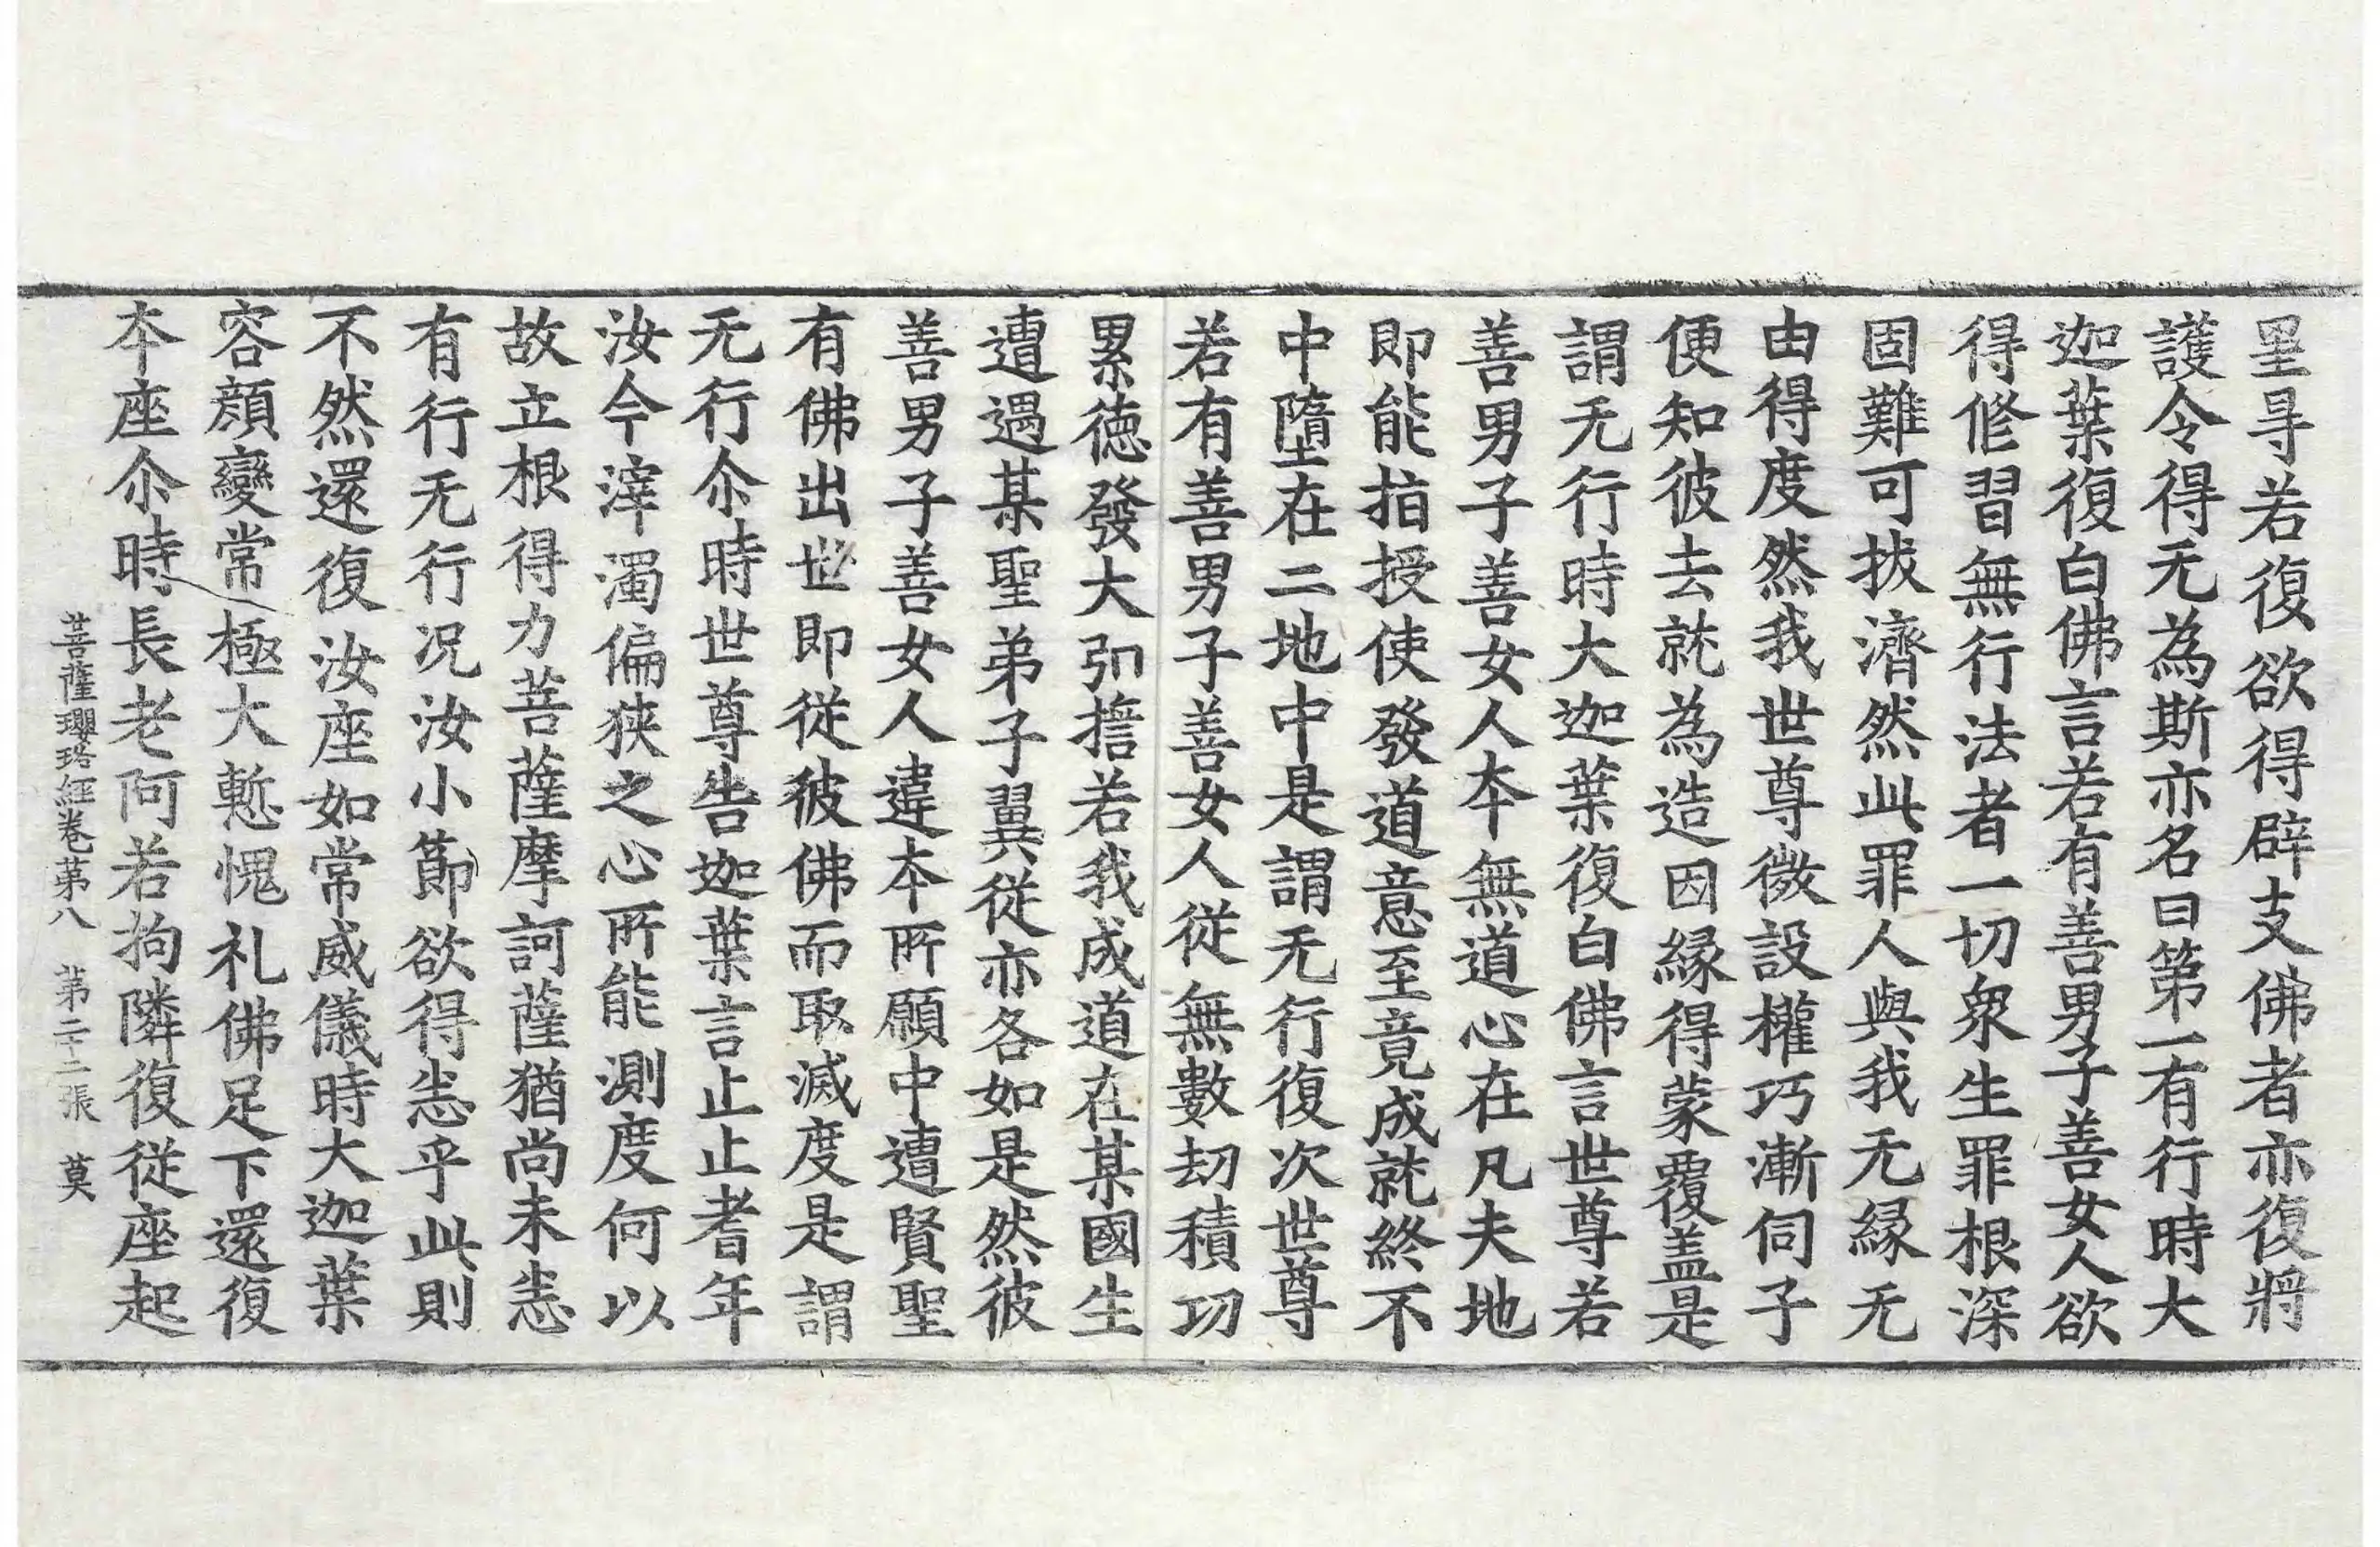 罣㝵若復欲得辟支佛者亦復將
護令得无為斯亦名曰第一有行時大
迦葉復白佛言若有善男子善女人欲
得修習無行法者一切衆生罪根深
固難可拔濟然此罪人與我无縁无
由得度然我世尊微設權巧漸伺子
便知彼去就為造因縁得蒙覆盖是
謂无行時大迦葉復白佛言世尊若
善男子善女人夲無道心在凡夫地
即能指授使發道意至竟成就終不
中墮在二地中是謂无行復次世尊
若有善男子善女人從無數劫積功
累徳發大弘誓若我成道在某國生
遭遇某聖弟子翼從亦各如是然彼
善男子善女人違夲所願中遭賢聖
有佛出世即從彼佛而取滅度是謂
无行尒時世尊告迦葉言止止耆年
汝今滓濁偏狹之心所能測度何以
故立根得力菩薩摩訶薩猶尚未悉
有行无行况汝小節欲得悉乎此則
不然還復汝座如常威儀時大迦葉
容顔變常極大慙愧礼佛足下還復
夲座尒時長老阿若拘隣復從座起
菩薩瓔珞經卷第八 第二十二張 莫